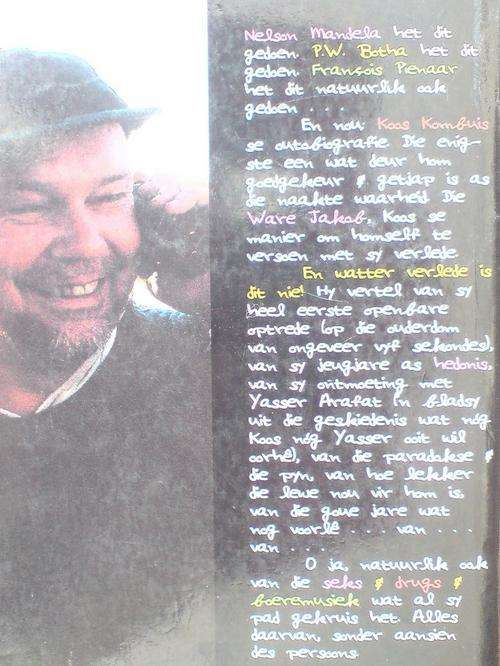 Nelson Mandela het dit
gedoen. P.W. Botha het dit
gedoen. François Pienaar
het dit natuurlik ook
gedoen . . .
En nou: Koos Kombuis
se outobiografie. Die enig-
ste een wat deur hom
goedgekeur & getjap is as
die naakte waarheid. Die
Ware Jakob. Koos se
manier om homself te
versoen met sy verlede.
En watter verlede is
dit nie! Hy vertel van sy
heel eerste openbare
optrede (op die ouderdom
van ongeveer vyf sekondes),
van sy jeugjare as hedonis,
van sy ontmoeting met
Yasser Arafat ('n bladsy
uit die geskiedenis wat nóg
Koos nóg Yasser ooit wil
oorhê), van die paradokse &
die pyn, van hoe lekker
die lewe nou vir hom is,
van die goue jare wat
nog voorlê . . . van . . . .
van . . . .
O ja, natuurlik ook
van die seks & drugs &
boeremusiek wat al sy
pad gekruis het. Alles
daarvan, sonder aansien
des persoons.